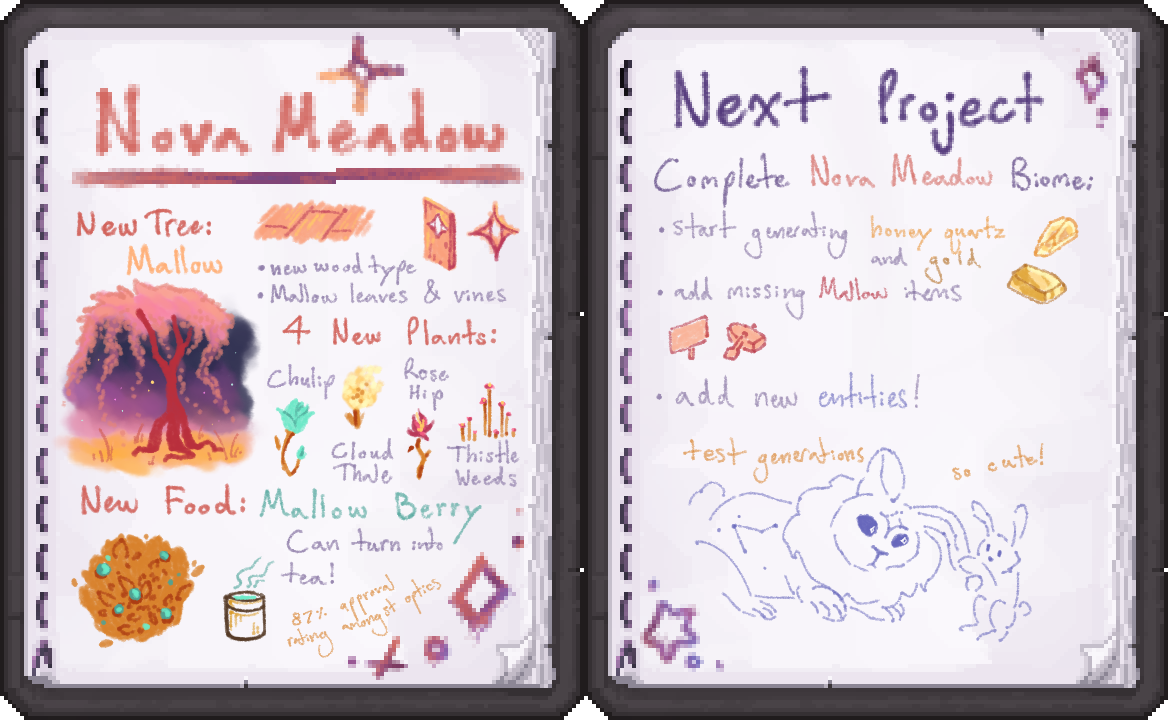 Nova Meadow
New Tree:
Mallow
• new wood type
• Mallow leaves & vines
4 New Plants:
Chulip
Rose
Hip
Cloud
Thale
Thistle
Weeds
New Food: Mallow Berry
Can turn into
tea!
87% approval
rating amongst optics
Next Project
Complete Nova Meadow Biome:
• start generating honey quartz
and gold
• add missing Mallow items
• add new entities!
test generations
so cute!